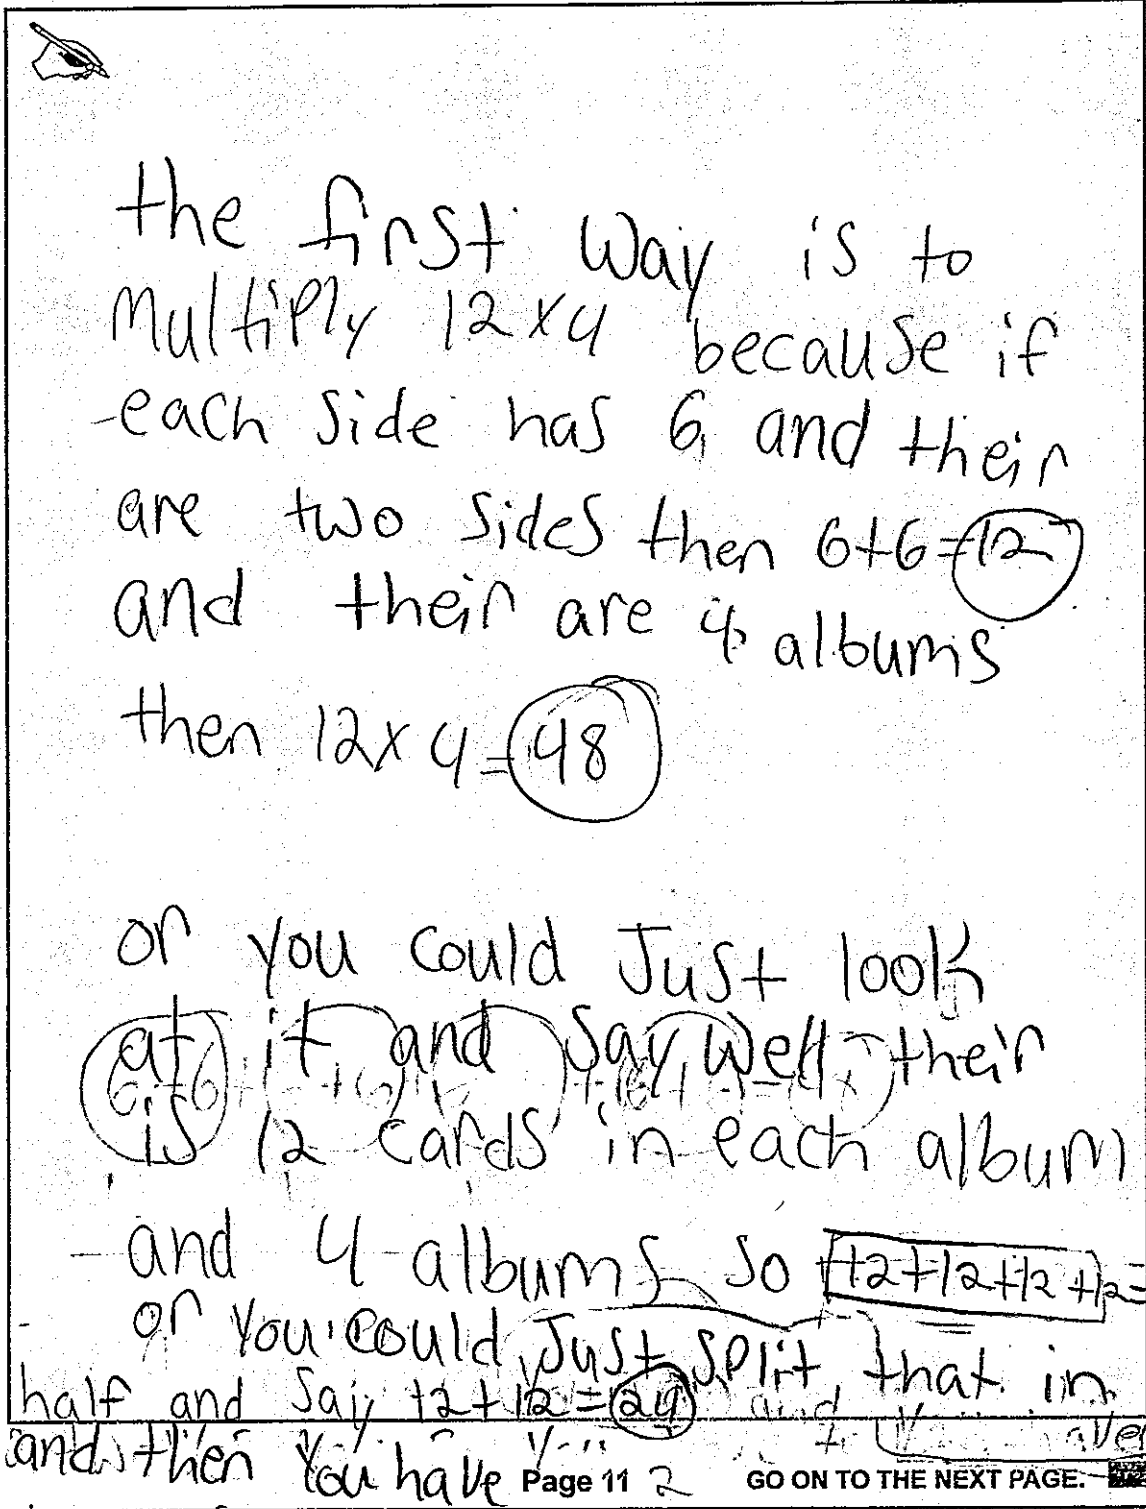 the first way is to
Multiply 12x4 because if
each side has 6 and their
are two sides then 6+6=12
and their are 4 albums
then 12x4=48
or you could Just look
at it and Say Well their
is 12 cards in each album
and 4 albums so 12+12+12+12=
or you could Just split that in
half and Say 12+12=24 and
and then You have 2
Page 11
GO ON TO THE NEXT PAGE.